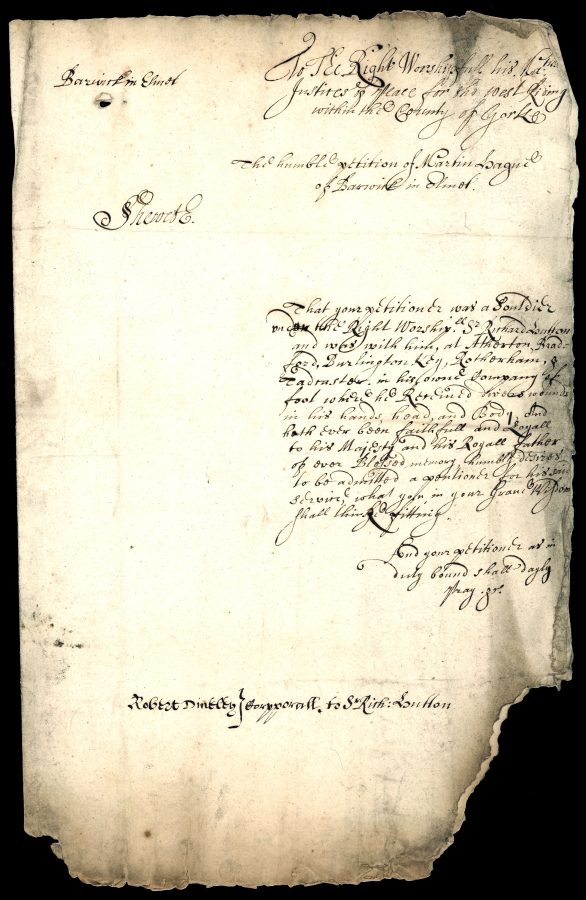 Barwick in Elmet
To The Right Worshipfull his Ma:ties
Justices of Peace for the west Riding
within the County of Yorke
The humble petition of Martin Hague
of Barwick in Elmet.
Sheweth.
That your petitioner was a Souldier
vnder the Right Worship:ll Sr Richard Hutton
and was with him, at Atherton, Brad-
ford, Burlington Key, Rotherham, &
Tadcaster. in his owne Company of
foot where he Received twelve wounds
in his hands, head, and Body, And
hath ever been faithfull and Loyall
to his Majesty and his Royall Father
of ever Blessed memory humbly desires
to be admitted a pentioner for his said
Service, what you in your Grave Wisdom
shall thinke fitting.
And your petitioner as in
duty bound shall dayly
Pray. &c.
Robert Dineley} Corpporall, to Sr Rich: Hutton